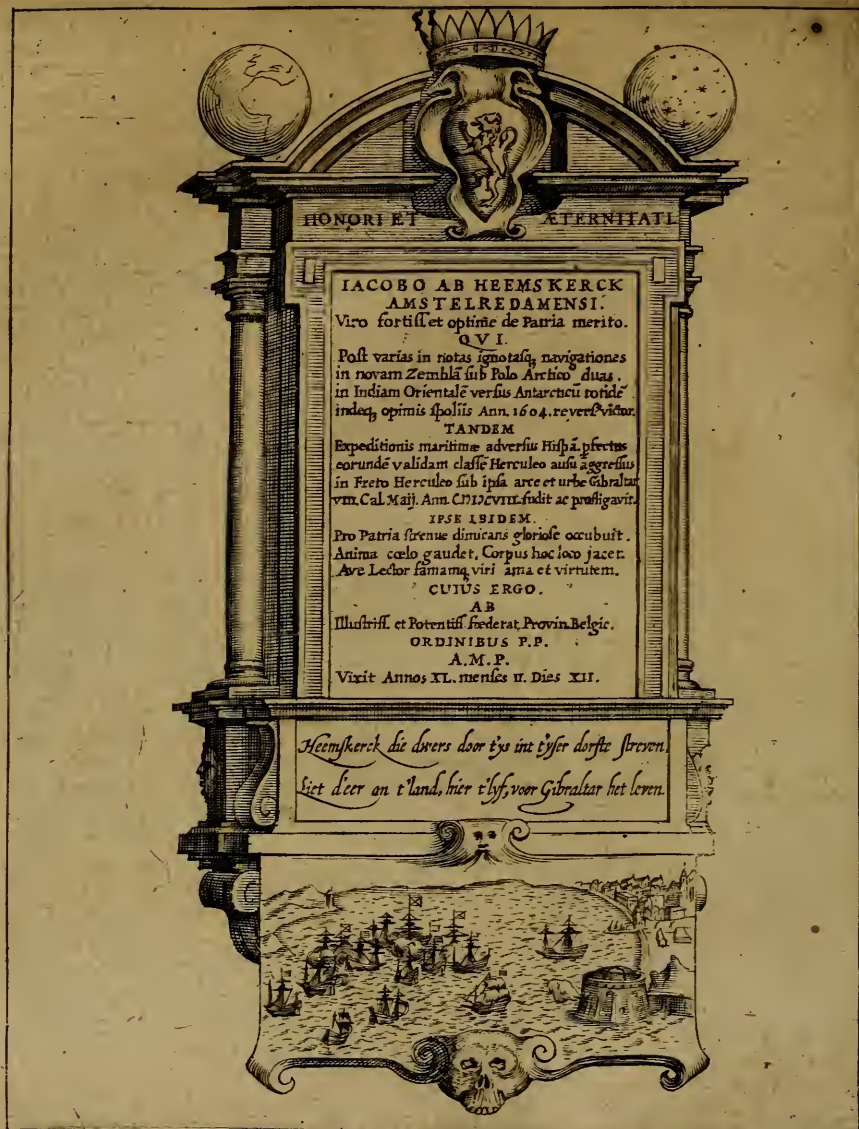 HONORI ET ÆTERNITATI.
IACOBO AB HEEMSKERCK
AMSTELREDAMENSI.
Viro fortiſſ et optime de Patria merito.
QVI.
Poſt varias in notas ignotaſq, navigationes
in novam Zemblā ſub Polo Arctico duas.
in Indiam Orientalē verſus Antarcticū totidē
indeq, opimis ſpoliis Ann. 1604. reverſ victor.
TANDEM
Expeditionis maritimæ adverſus Hiſpā. pfectus
eorundē validam claſſē Herculeo auſu aggreſſus
in Freto Herculeo ſub ipſa arce et urbe Gibraltar
VIII. Cal. Maij. Ann. fudit ac profligavit.
IPSE IBIDEM.
Pro Patria ſtrenue dimicans glorioſe occubuit.
Anima cœlo gaudet, Corpus hoc loco jacet.
Ave Lector famamq, viri ama et virtutem.
CUIUS ERGO.
AB
Illuſtriſſ. et Potentiſſ fœderat. Provin. Belgic.
ORDINIBUS P.P.
A.M.P.
Vixit Annos XL. menſes II. Dies XII.
Heemſkerck die dwers door t'ys int t'yſer dorſte ſtreven,
Liet d'eer an t'land, hier t'lyf, voor Gibraltar het leven.